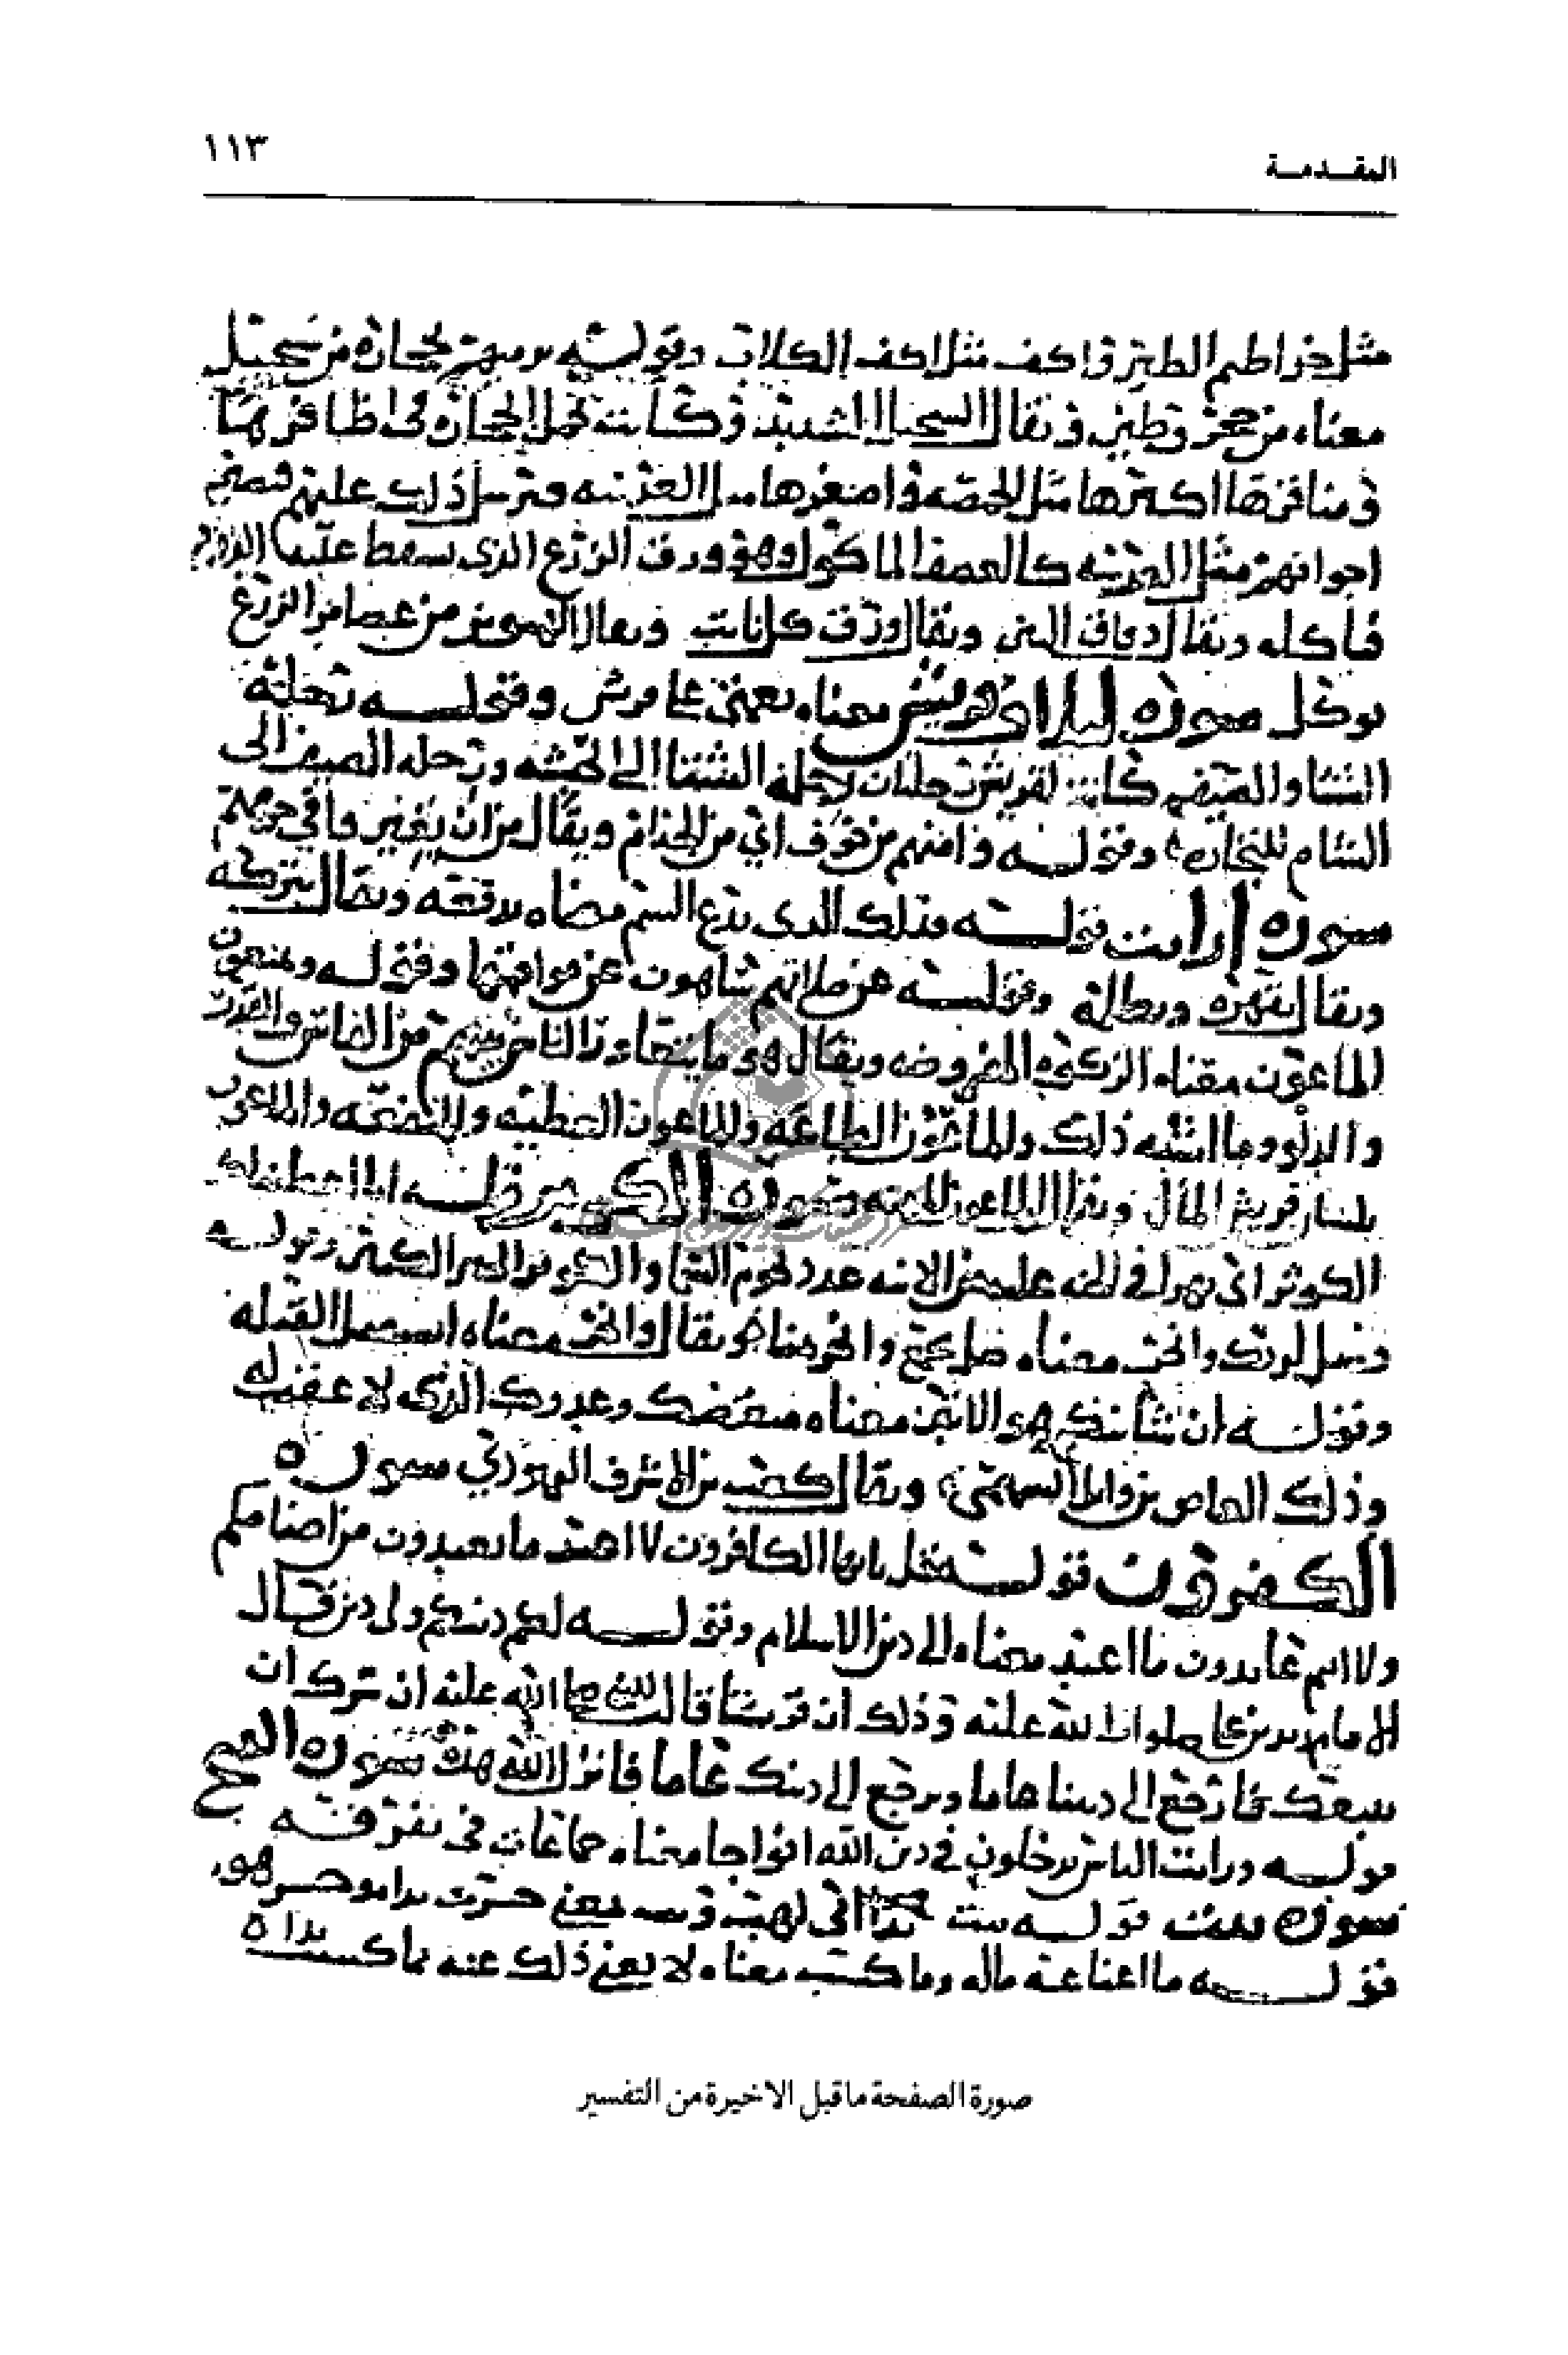 ١١٣
المقـدمـة
مثل خراطيم الطير واكف مثل اكف الكلاب وقوله ترميهم بحجارة من سجيل
معناه من حجر وطين ويقال السجيل الشديد وكانت تحمل الحجارة في اظافرها
ومناقرها اكبرها مثل الحمصه واصغرها مثل العدسه فترسل ذلك عليهم فتصير
اجوافهم مثل كالعصف الماكول وهو ورق الزرع الذي سقط عليه الدود
فاكله ويقال دقاق التبن ويقال ورق كل نابت ويقال من عصافر الزرع
توكل سوره ليلاف قريش معناه نعمتي على قريش وقوله رحلة
الشتا والصيف كانت لقريش رحلتان رحلة الشتا الى الحبشه ورحله الصيف الى
الشام للتجاره وقوله وامنهم من خوف اي من الجذام ويقال من ان يغير في حرمهم
سوره ارايت قوله فذلك الذى يدع اليتيم معناه يدفعه ويقال يتركه
ويقال يقهره ويظلمه وقوله عن صلاتهم ساهون عن مواقيتها وقوله ويمنعون
الماعون معناه الزكوه المفروضه ويقال هو ما يتعاوره الناس بينهم من الفاس والقدر
والدلو وما اشبه ذلك والماعون الطاعه والماعون العطيه والمنفعه والماعون
بلسان قريش المال ويقال الماعون سوره الكوثر قوله انا اعطيناك
الكوثر اي نهرا في الجنه عليه من الانيه عدد نجوم السما والكوثر الخير الكثير وقوله
فصل لربك وانحر معناه صل بجمع وانحر بمنا ويقال وانحر معناه استقبل القبله
وقوله ان شانئك هو الابتر معناه مبغضك وعدوك الذي لا عقب له
وذلك العاص بن وايل السهمي ويقال كعب بن الاشرف اليهودي سوره
الكفرون قوله قل يايها الكافرون لا اعبد ما تعبدون من اصنامكم
ولا انتم عابدون ما اعبد معناه الى دين الاسلام وقوله لكم دينكم ولى دين قال
الامام زيد بن على صلوات الله عليه وذلك ان قريشا قالت للنبي صلى الله عليه ان سرك ان
نتبعك فارجع الى ديننا عاما ونرجع الى دينك عاما فانزل الله هذه سوره الفتح
قوله ورايت الناس يدخلون في دين الله افواجا معناه جماعات في تفرقه
سوره تبت قوله تبت يدا ابي لهب وتب يعني خسرت يداه وخسر هو
قوله ما اغنا عنه ماله وما كسب معناه لا يغني ذلك عنه ما كسبت يداه
صورة الصفحة ماقبل الاخيرة من التفسير